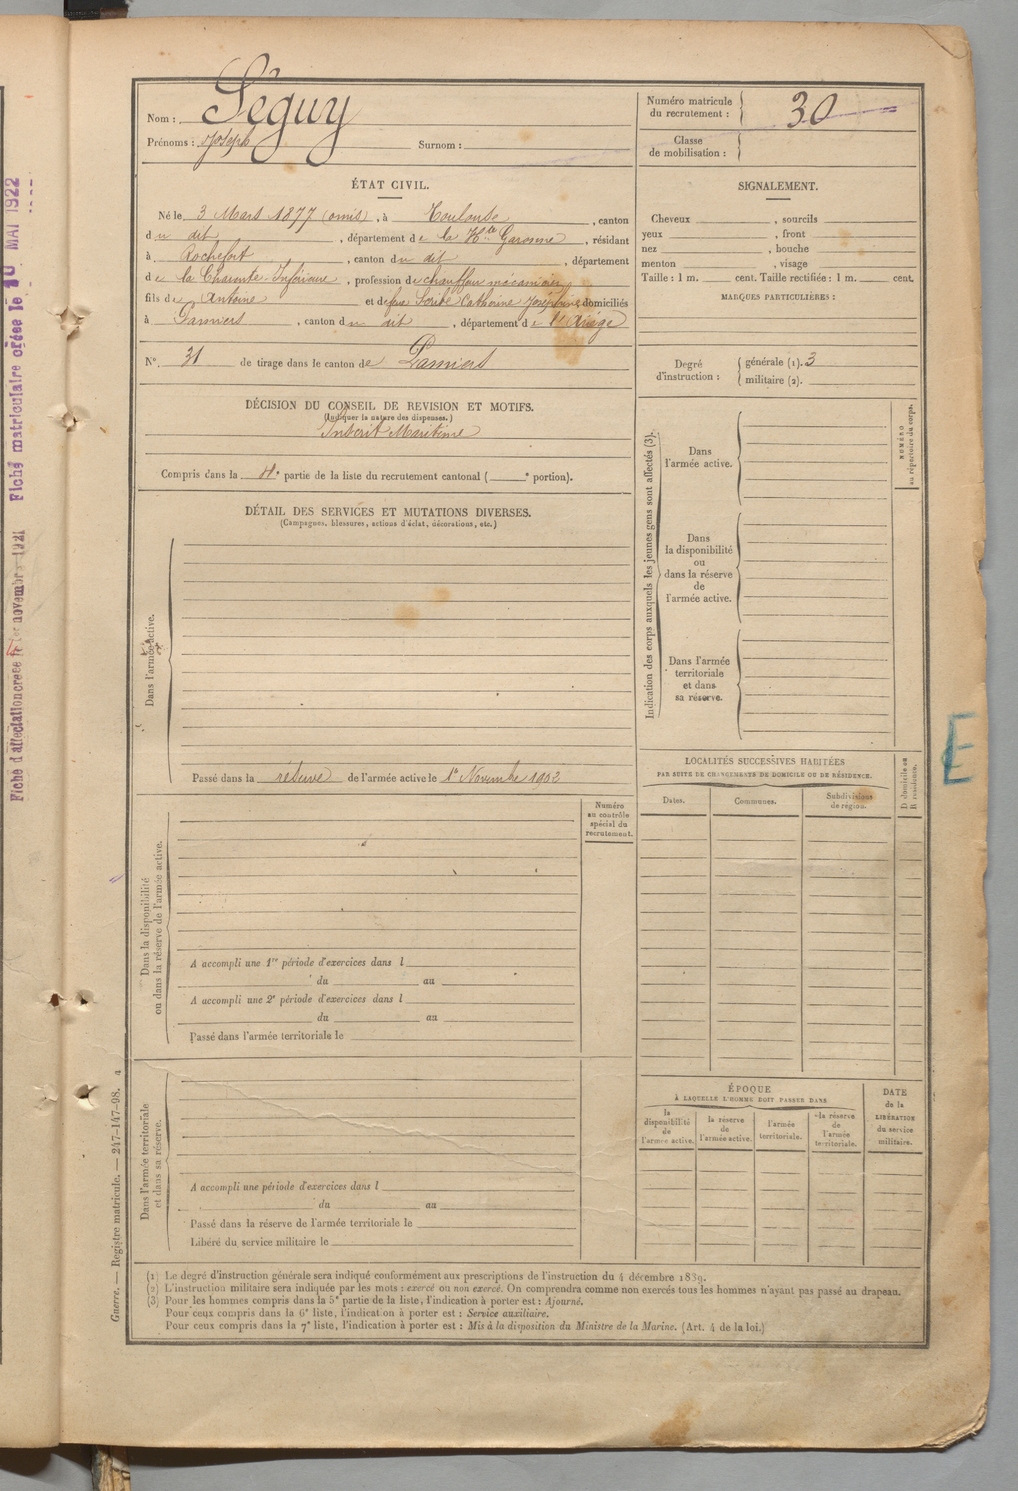 Nom : Séguy
Prénoms : Joseph Surnom :
Numéro matricule du recrutement : 30
Classe de mobilisation :
ÉTAT CIVIL.
Né le 3 Mars 1877 (omis), à Toulouse, canton
du dit, département de la Hte Garonne, résidant
à Rochefort, canton du dit, département
de la Charente-Inférieure, profession de chauffeur mécanicien
fils de Antoine et de feue Catherine Joséphine, domiciliés
à Pamiers, canton du dit, département de l'Ariège
N°. 31 de tirage dans le canton de Pamiers
SIGNALEMENT.
Cheveux , sourcils
yeux , front
nez , bouche
menton , visage
Taille : 1 m. cent. Taille rectifiée : 1 m. cent.
MARQUES PARTICULIÈRES :
Degré d'instruction : générale (1). 3
militaire (2).
DÉCISION DU CONSEIL DE REVISION ET MOTIFS.
(Indiquer la nature des dispenses.)
Inscrit Maritime
Compris dans la 4e partie de la liste du recrutement cantonal ( e portion).
DÉTAIL DES SERVICES ET MUTATIONS DIVERSES.
(Campagnes, blessures, actions d'éclat, décorations, etc.)
Dans l'armée active.
Passé dans la réserve de l'armée active le 1er Novembre 1902
Indication des corps auxquels les jeunes gens sont affectés (3).
Dans
l'armée active.
Dans
la disponibilité
ou
dans la réserve
de
l'armée active.
Dans l'armée
territoriale
et dans
sa réserve.
NUMÉRO
au répertoire du corps.
LOCALITÉS SUCCESSIVES HABITÉES
PAR SUITE DE CHANGEMENTS DE DOMICILE OU DE RÉSIDENCE.
Dates. Communes. Subdivisions de région.
D domicile ou
R résidence.
E
Numéro
au contrôle
spécial du
recrutement.
Dans la disponibilité
ou dans la réserve de l'armée active.
A accompli une 1re période d'exercices dans l
du au
A accompli une 2e période d'exercices dans l
du au
Passé dans l'armée territoriale le
Dans l'armée territoriale
et dans sa réserve.
A accompli une période d'exercices dans l
du au
Passé dans la réserve de l'armée territoriale le
Libéré du service militaire le
ÉPOQUE
À LAQUELLE L'HOMME DOIT PASSER DANS
la disponibilité de l'armée active.
la réserve de l'armée active.
l'armée territoriale.
la réserve de l'armée territoriale.
DATE
de la
LIBÉRATION
du service
militaire.
(1) Le degré d'instruction générale sera indiqué conformément aux prescriptions de l'instruction du 4 décembre 1889.
(2) L'instruction militaire sera indiquée par les mots : exercé ou non exercé. On comprendra comme non exercés tous les hommes n'ayant pas passé au drapeau.
(3) Pour les hommes compris dans la 5e partie de la liste, l'indication à porter est : Ajourné.
Pour ceux compris dans la 6e liste, l'indication à porter est : Service auxiliaire.
Pour ceux compris dans la 7e liste, l'indication à porter est : Mis à la disposition du Ministre de la Marine. (Art. 4 de la loi.)
Guerre. — Registre matricule. — 247-147-98.
Fiche matriculaire créée le MAI 1922
Fiche d'affectation créée le 1er novembre 1921